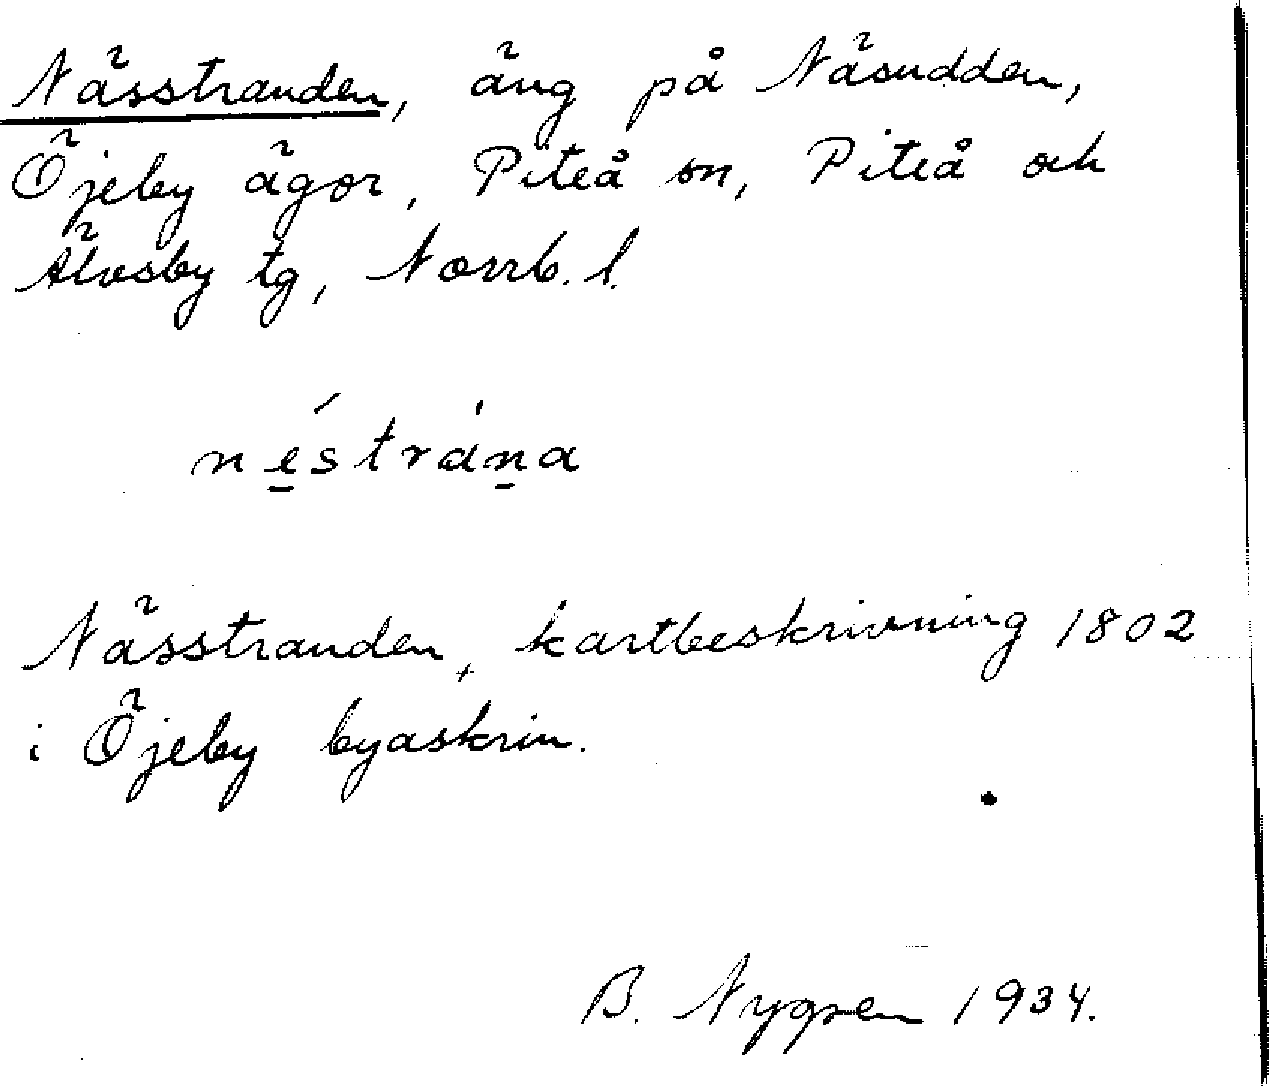 Nässtranden, äng på Näsudden,
Öjeby ägor, Piteå sn, Piteå och
Älvsby tg, Norrb. l.
ne̱´strána
Nässtranden, kartbeskrivning 1802
i Öjeby byaskrin.
B. Nygren 1934.